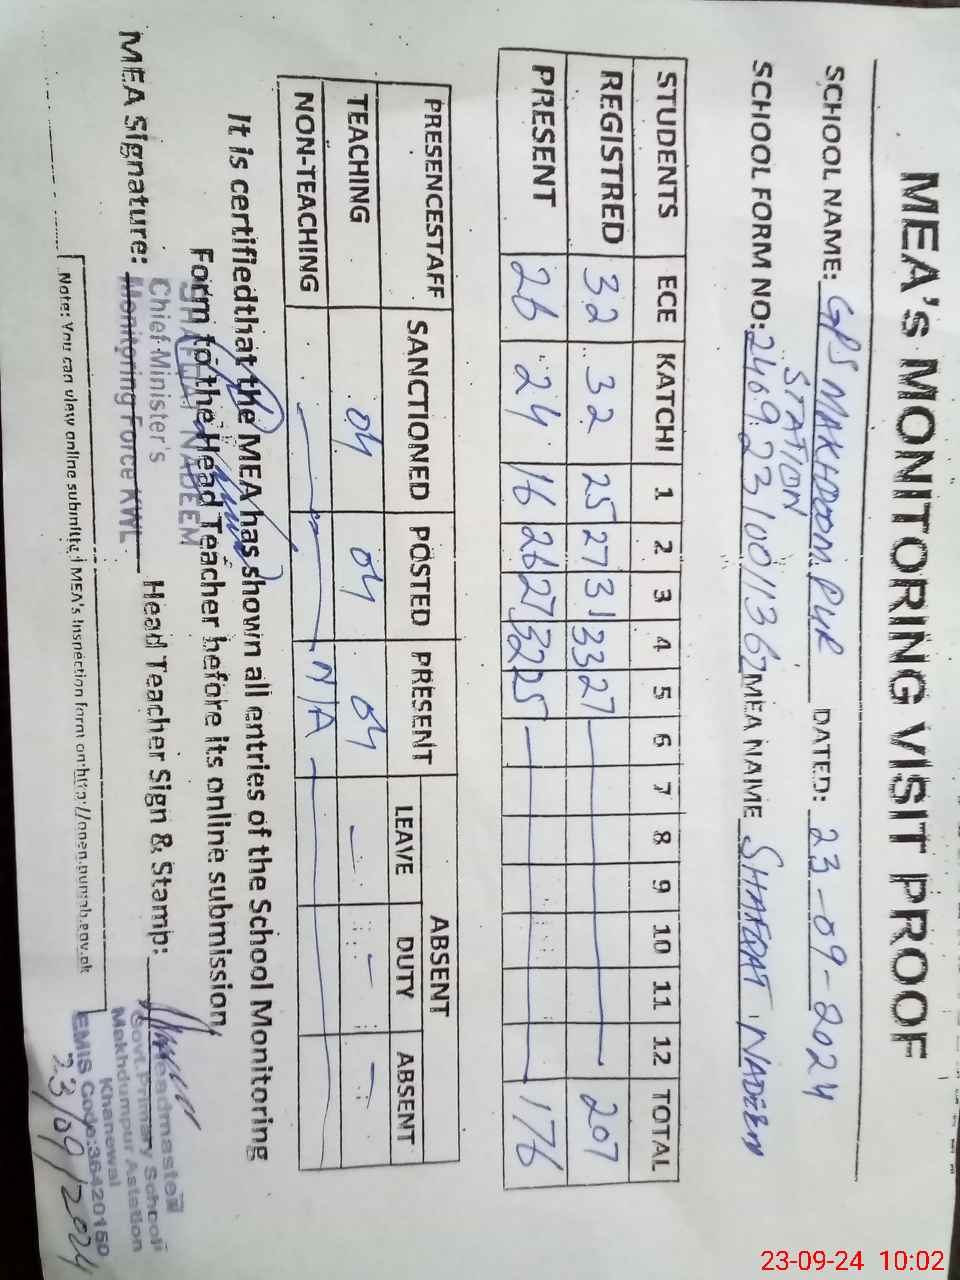 MEA's MONITORING VISIT PROOF
SCHOOL NAME: GPS MAKHDOOM PUR STATION DATED: 23-09-2024
SCHOOL FORM NO: 2409231001136 MEA NAME SHAFQAT NADEEM
STUDENTS ECE KATCHI 1 2 3 4 5 6 7 8 9 10 11 12 TOTAL
REGISTRED 32 32 25 27 31 33 27 207
PRESENT 26 24 16 26 27 32 25 176
PRESENCESTAFF SANCTIONED POSTED PRESENT ABSENT
LEAVE DUTY ABSENT
TEACHING 04 04 04 - - -
NON-TEACHING N/A
It is certifiedthat the MEA has shown all entries of the School Monitoring
Form to the Head Teacher before its online submission
SHAFQAT NADEEM
Chief Minister's
Monitoring Force KWL
MEA Signature: Head Teacher Sign & Stamp:
Headmaster
Govt. Primary School
Makhdumpur Astation
Khanewal
EMIS Code:36420150
23/09/2024
Note: You can view online submitted MEA's Inspection form on:http://open.punjab.gov.pk
23-09-24 10:02